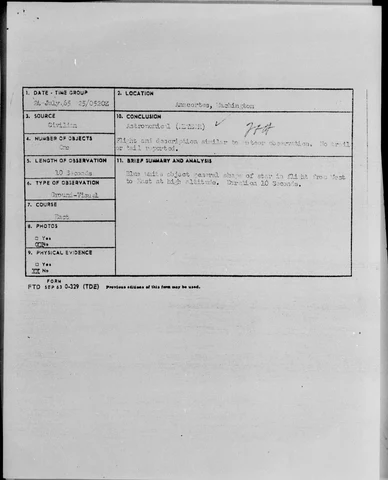 1. DATE - TIME GROUP
24 July 65 25/0530Z
2. LOCATION
Anacortes, Washington
3. SOURCE
Civilian
10. CONCLUSION
Astronomical (METEOR)
Flight and description similar to meteor observation. No trail
or tail reported.
4. NUMBER OF OBJECTS
One
5. LENGTH OF OBSERVATION
10 Seconds
11. BRIEF SUMMARY AND ANALYSIS
Blue white object general shape of star in flight from West
to East at high altitude. Duration 10 Seconds.
6. TYPE OF OBSERVATION
Ground-Visual
7. COURSE
East
8. PHOTOS
□ Yes
No
9. PHYSICAL EVIDENCE
□ Yes
XX No
FORM
FTD SEP 63 0-329 (TDE) Previous editions of this form may be used.